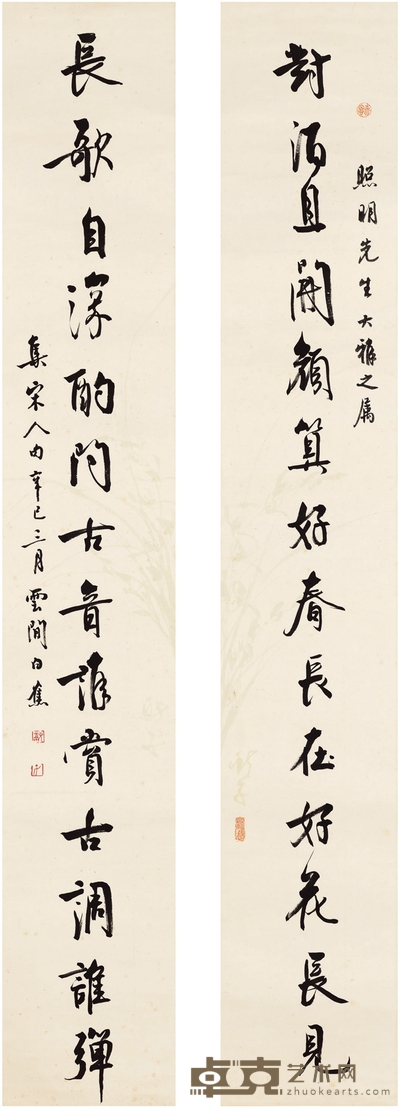 照明先生大雅之属
對酒且開顏算好春長在好花長見
長歌自深酌問古音誰賞古調誰彈
集宋人句辛巳三月雲間白蕉
卓克艺术网
zhuokearts.com